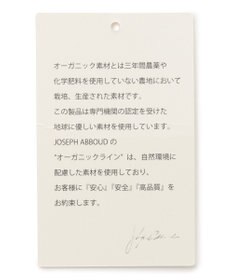 オーガニック素材とは三年間農薬や
化学肥料を使用していない農地において
栽培、生産された素材です。
この製品は専門機関の認定を受けた
地球に優しい素材を使用しています。
JOSEPH ABBOUD の
"オーガニックライン" は、自然環境に
配慮した素材を使用しており、
お客様に『安心』『安全』『高品質』を
お約束します。